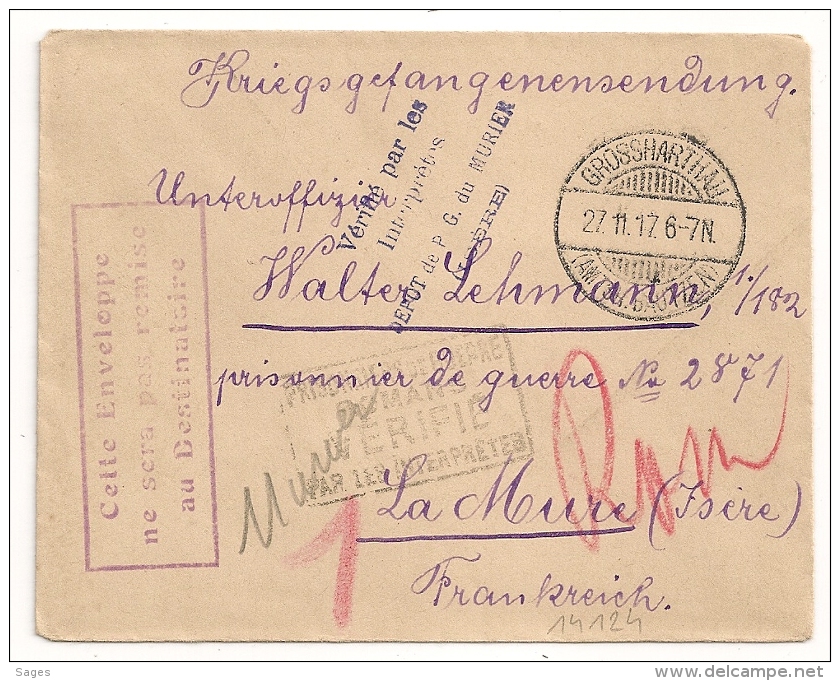 Kriegsgefangenensendung.
Unteroffizier
Walter Lehmann, 1./182
prisonnier de guerre No 2871
La Mure (Isère)
Frankreich.
Vérifié par les
Interprètes
DEPÔT de P. G. du MURIER
(ISÈRE)
GROSSHARTHAU
27.11.17. 6-7N.
BAUTZEN)
Cette Enveloppe
ne sera pas remise
au Destinataire
PRISONNIERS DE GUERRE
VERIFIE
PAR LES INTERPRÈTES
Murier
1
14124
Sages
delcampe.net